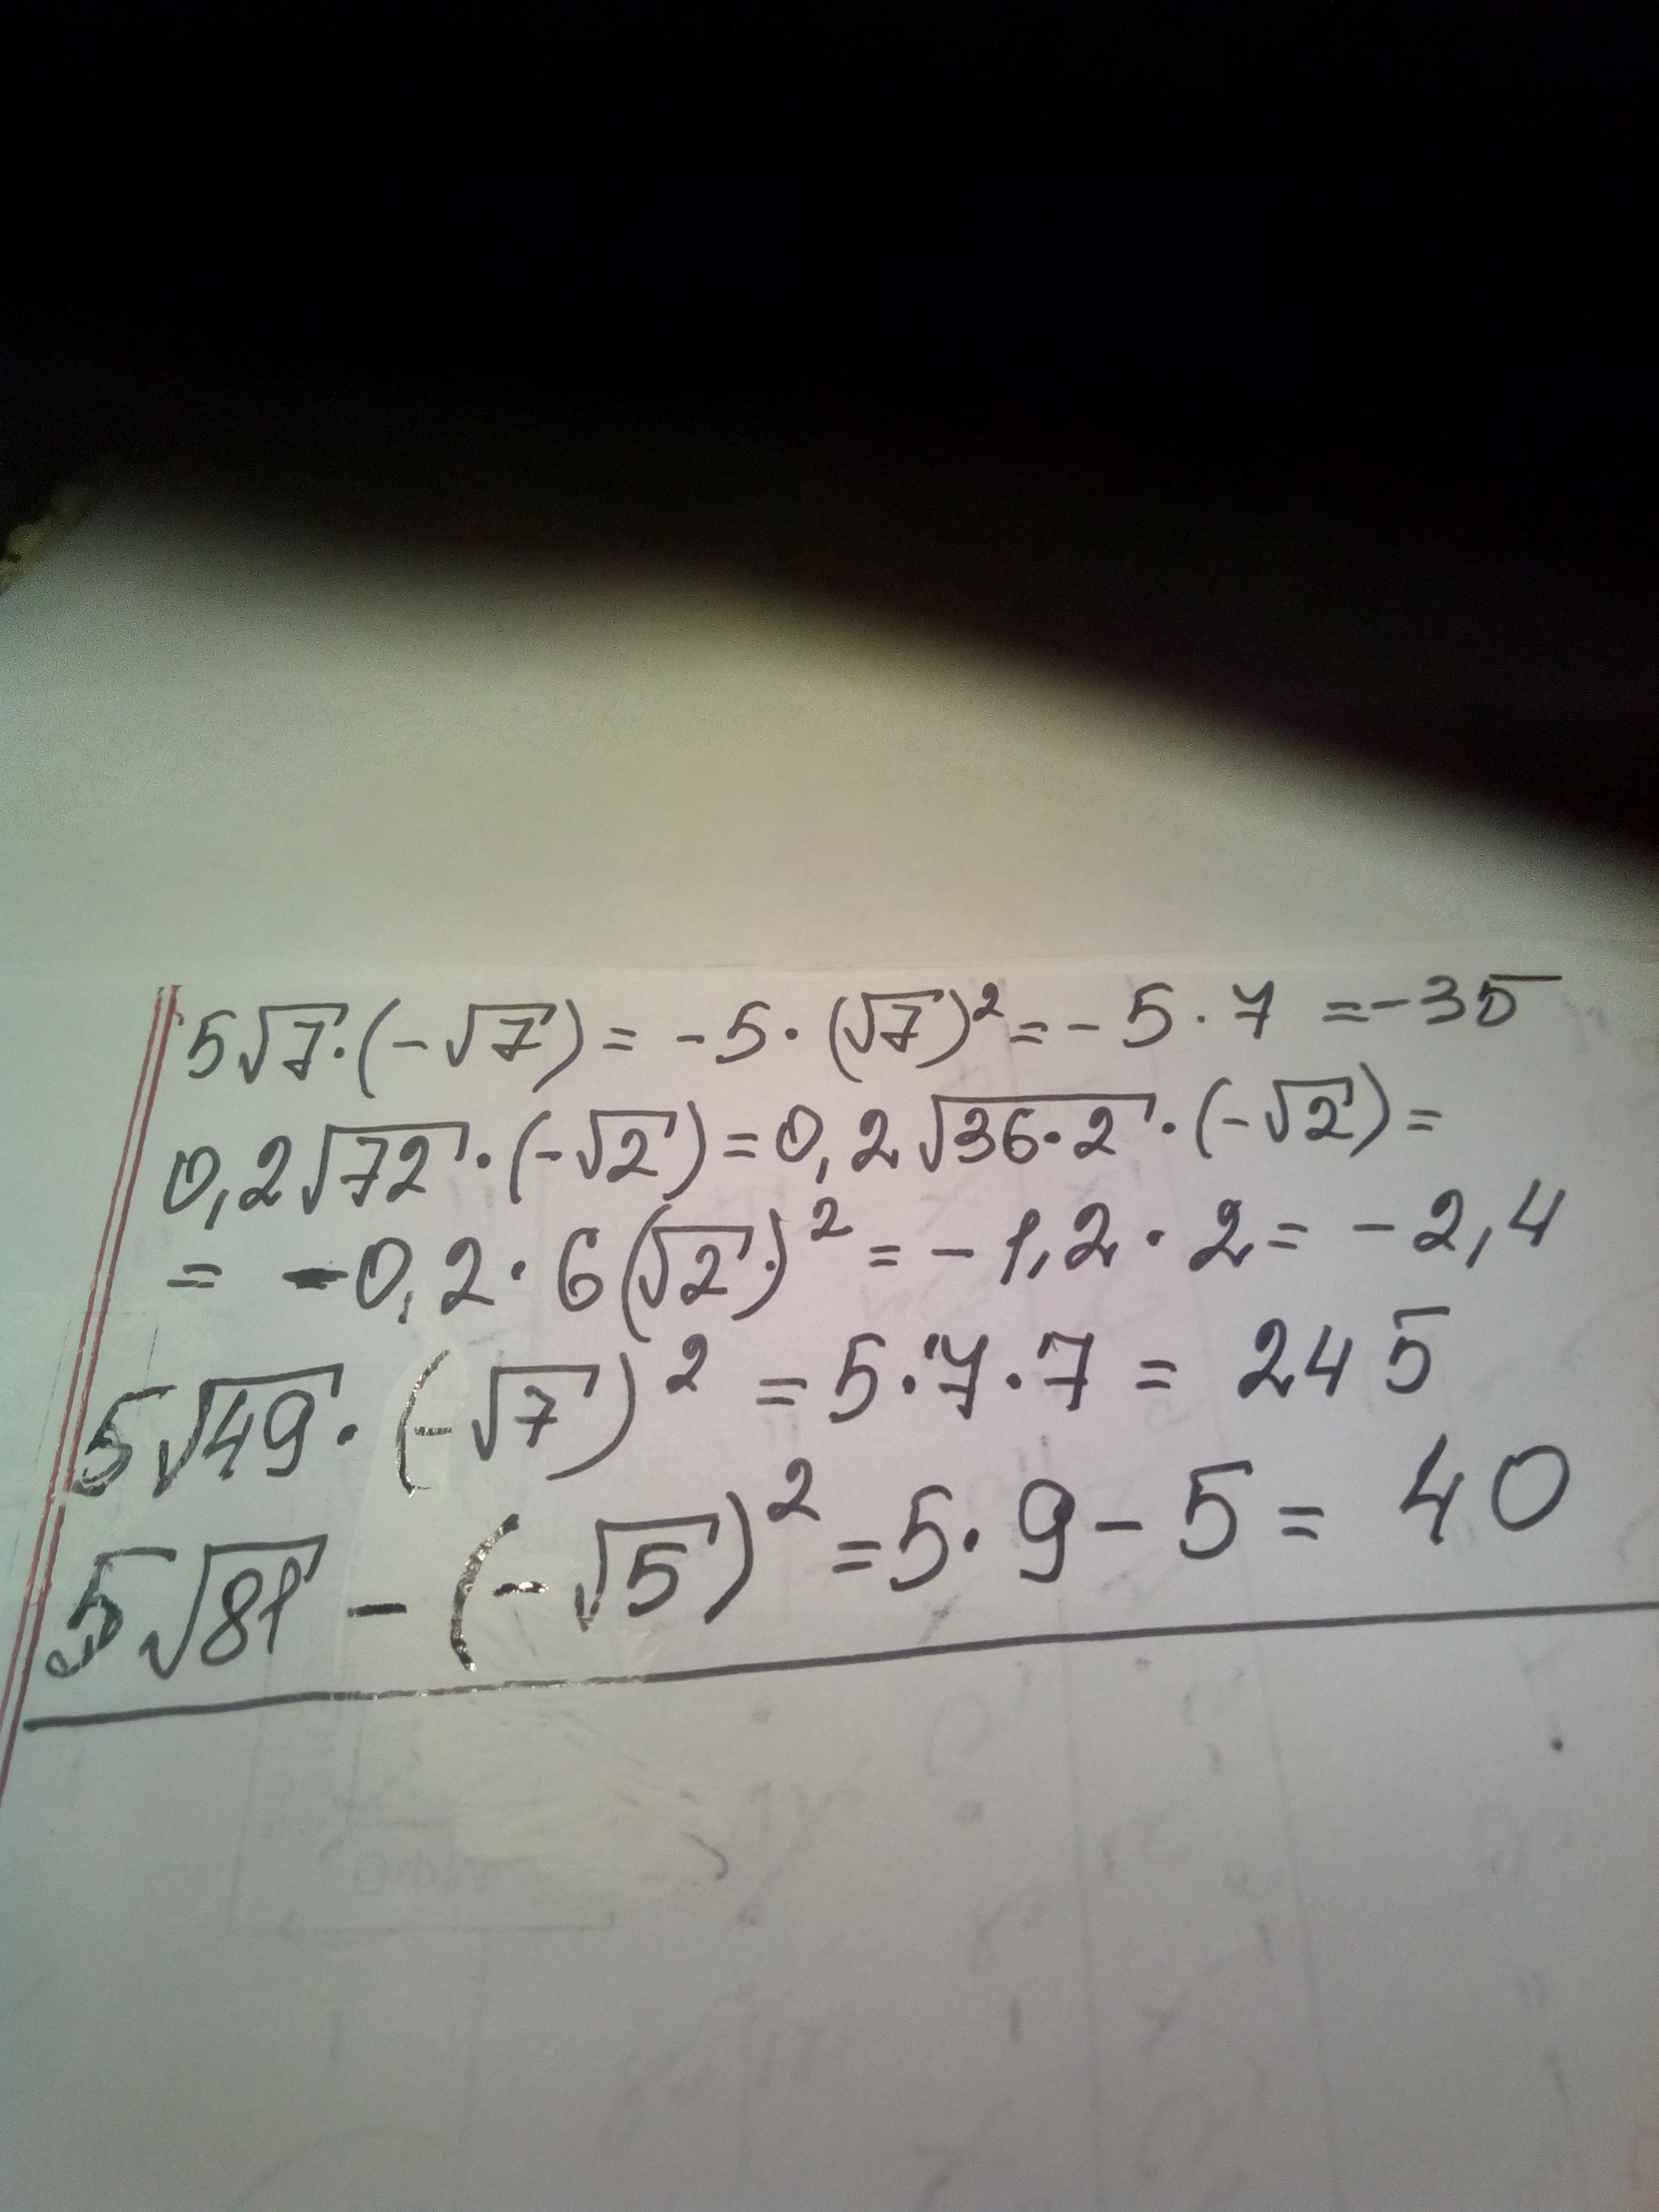 5√7·(-√7) = -5·(√7)² = -5·7 = -35
0,2√72·(-√2) = 0,2√36·2·(-√2) =
= -0,2·6(√2·)² = -1,2·2 = -2,4
5√49·(-√7)² = 5·7·7 = 245
5√81 - (-√5)² = 5·9 - 5 = 40